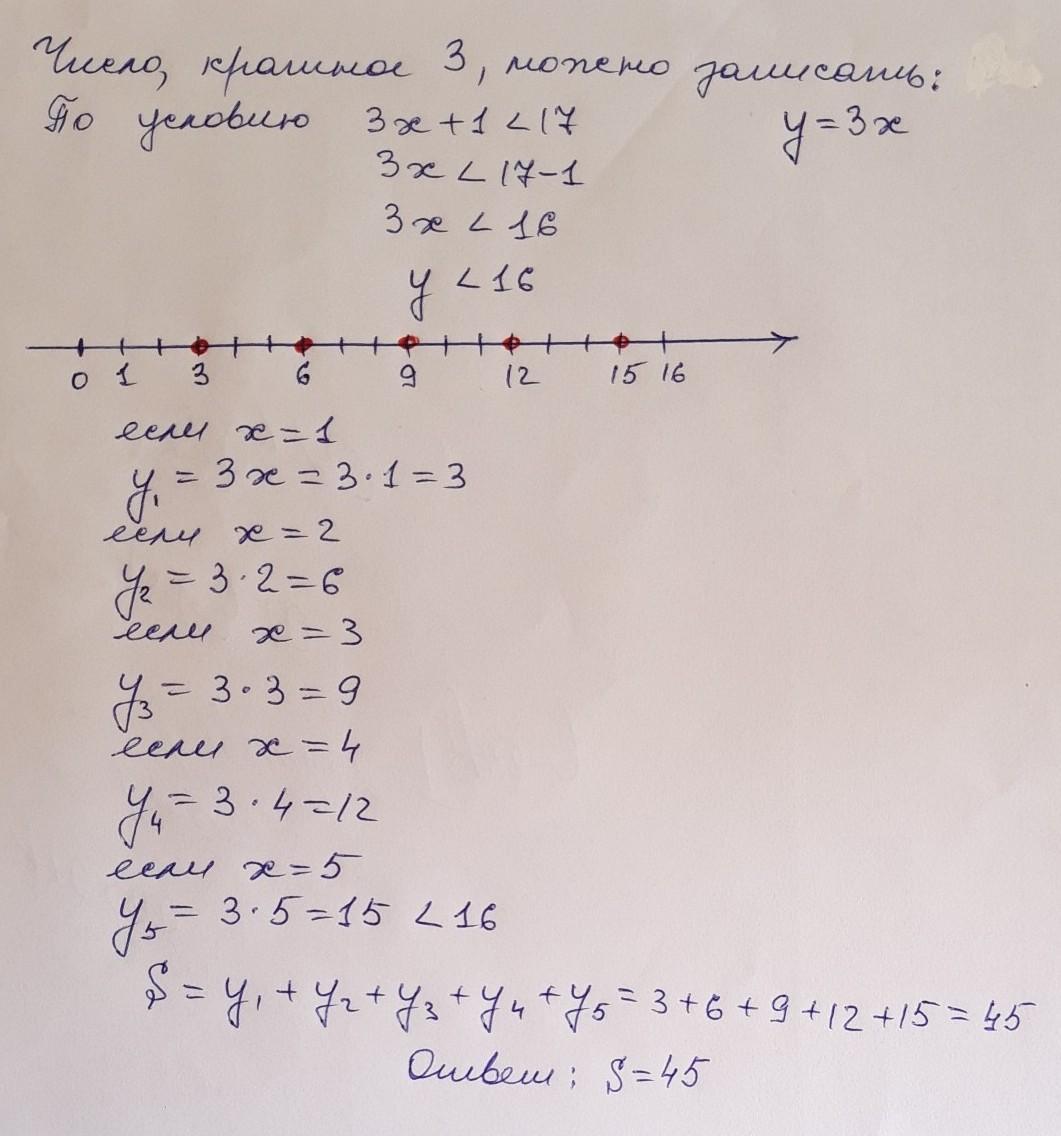 Число, кратное 3, можно записать:
По условию 3x+1<17 y=3x
3x<17-1
3x<16
y<16
0 1 3 6 9 12 15 16
если x=1
y₁=3x=3·1=3
если x=2
y₂=3·2=6
если x=3
y₃=3·3=9
если x=4
y₄=3·4=12
если x=5
y₅=3·5=15<16
S=y₁+y₂+y₃+y₄+y₅=3+6+9+12+15=45
Ответ: S=45